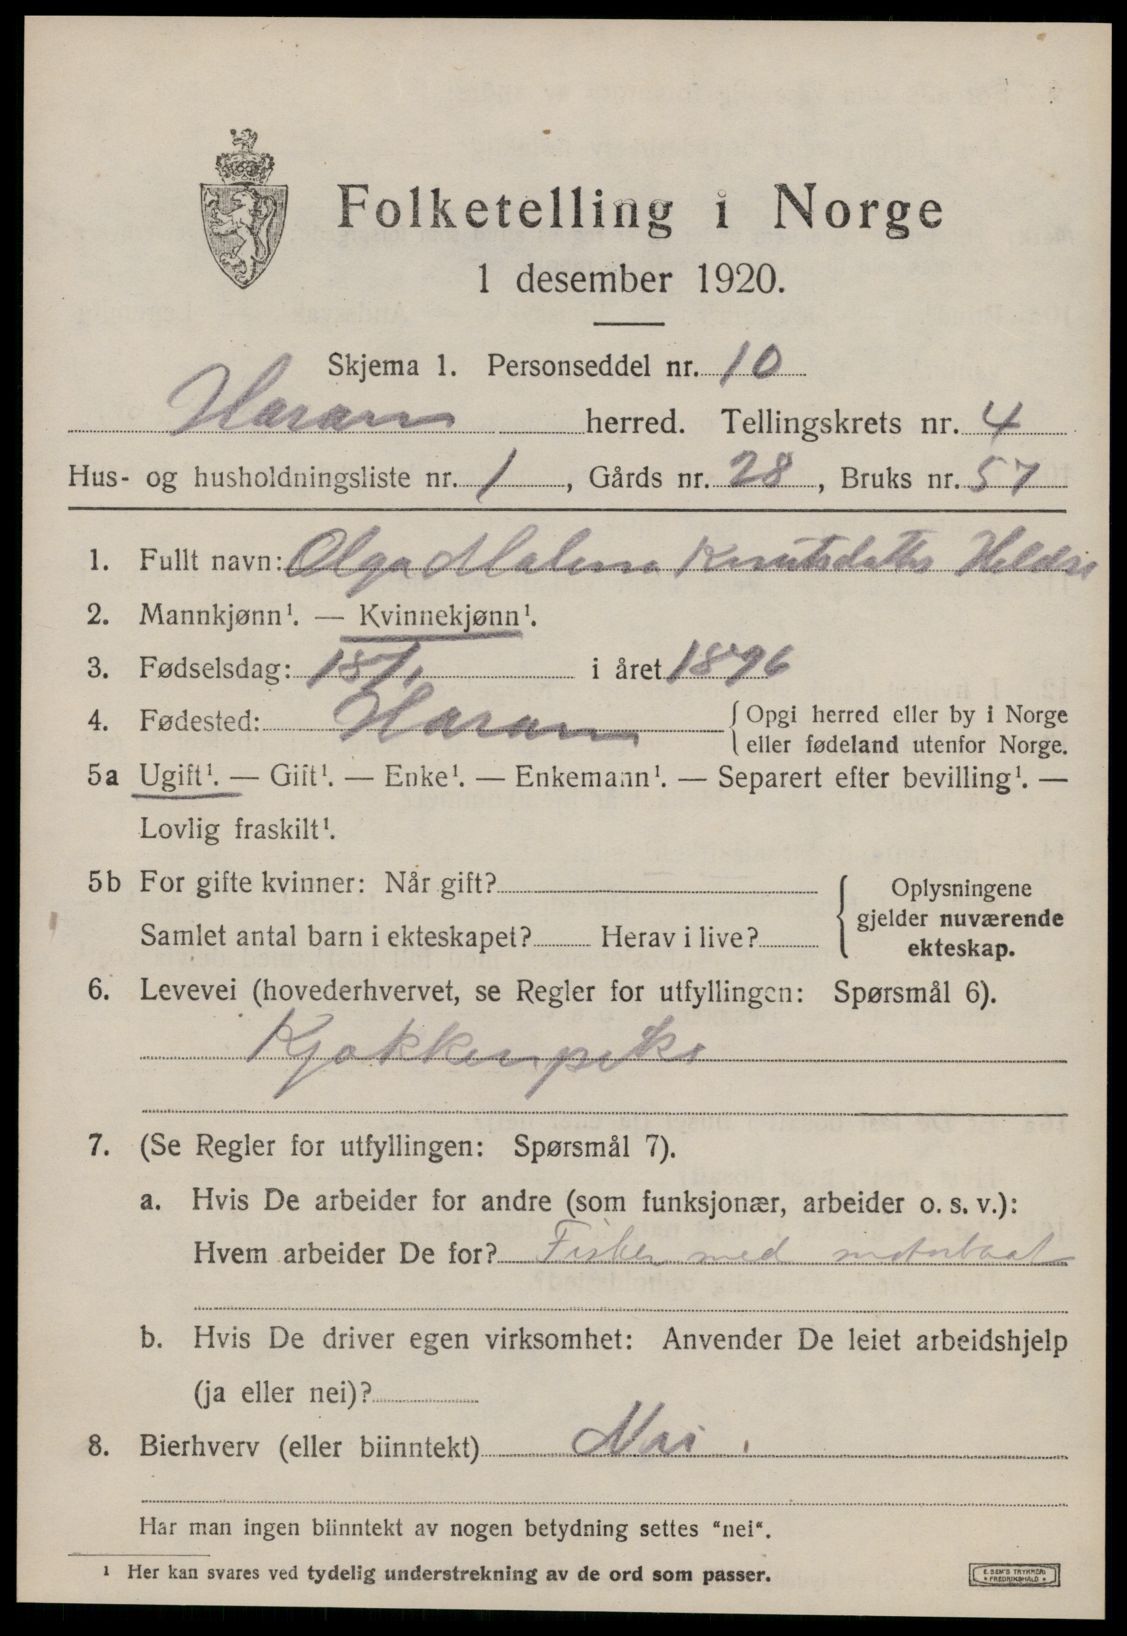 Folketelling i Norge
1 desember 1920.
Skjema 1. Personseddel nr. 10
Haram herred. Tellingskrets nr. 4
Hus- og husholdningsliste nr. 1, Gårds nr. 28, Bruks nr. 57
1. Fullt navn: Olga Malene Knutsdatter Heldre
2. Mannkjønn¹. — Kvinnekjønn¹.
3. Fødselsdag: i året 1896
4. Fødested: Haram {Opgi herred eller by i Norge
eller fødeland utenfor Norge.
5a Ugift¹. — Gift¹. — Enke¹. — Enkemann¹. — Separert efter bevilling¹. —
Lovlig fraskilt¹.
5b For gifte kvinner: Når gift? { Oplysningene
gjelder nuværende
Samlet antal barn i ekteskapet? Herav i live?
ekteskap.
6. Levevei (hovederhvervet, se Regler for utfyllingen: Spørsmål 6).
Kjøkkenpike
7. (Se Regler for utfyllingen: Spørsmål 7).
a. Hvis De arbeider for andre (som funksjonær, arbeider o. s. v.):
Hvem arbeider De for? Fisker med motorbaat
b. Hvis De driver egen virksomhet: Anvender De leiet arbeidshjelp
(ja eller nei)?
8. Bierhverv (eller biinntekt) Nei.
Har man ingen biinntekt av nogen betydning settes "nei".
¹ Her kan svares ved tydelig understrekning av de ord som passer.
E. SEM'S TRYKKERI
FREDRIKSHALD